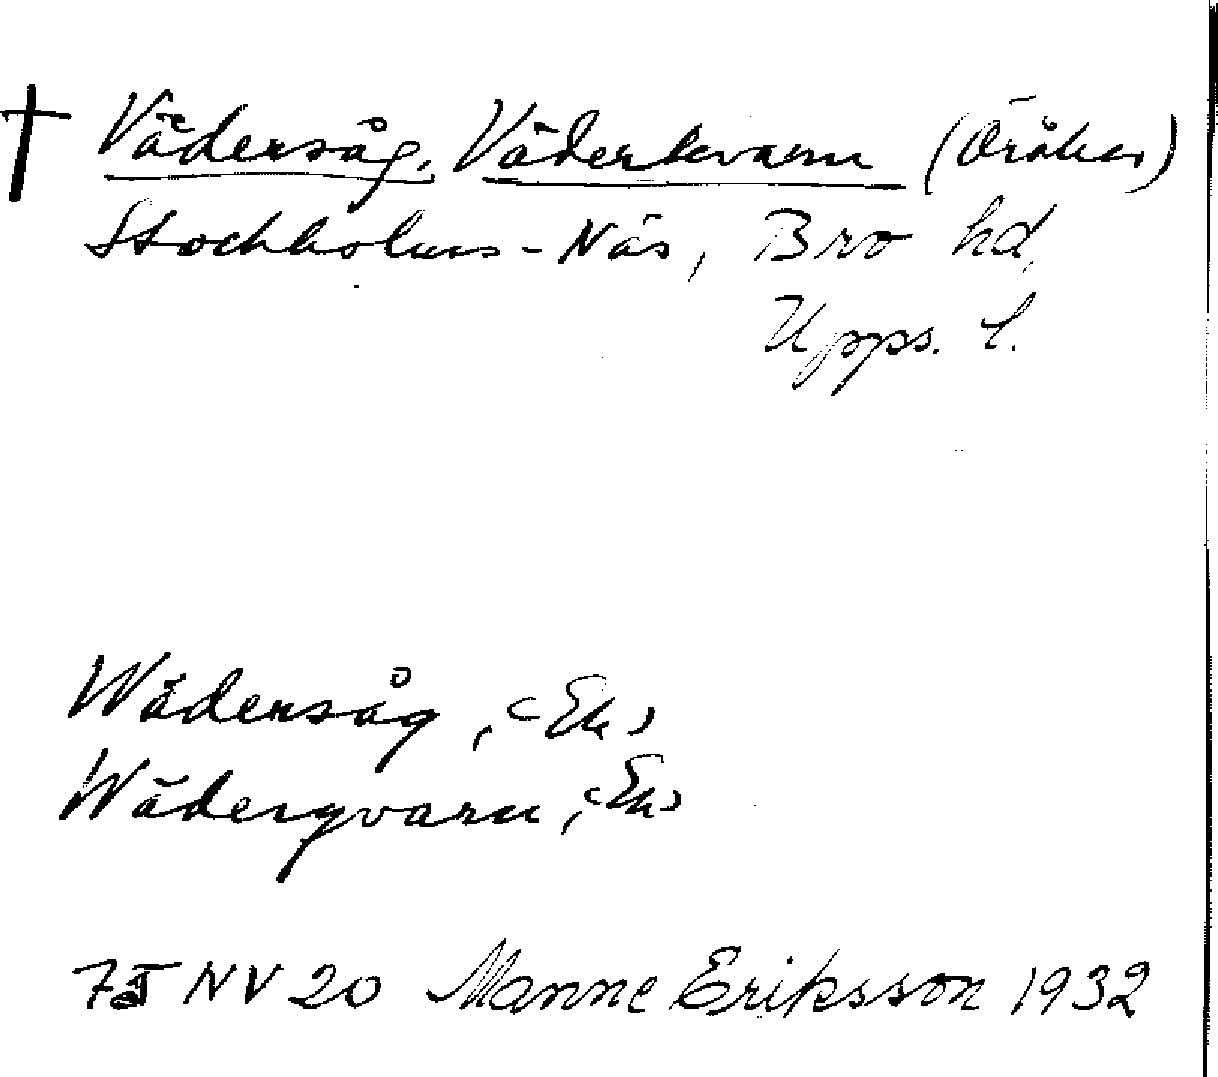 † Vädersåg, Väderkvarn (Öråker)
Stockholms-Näs, Bro hd,
Upps. l.
Wädersåg, (Ek)
Wäderqvarn, (Ek)
75 NV 20 Manne Eriksson 1932